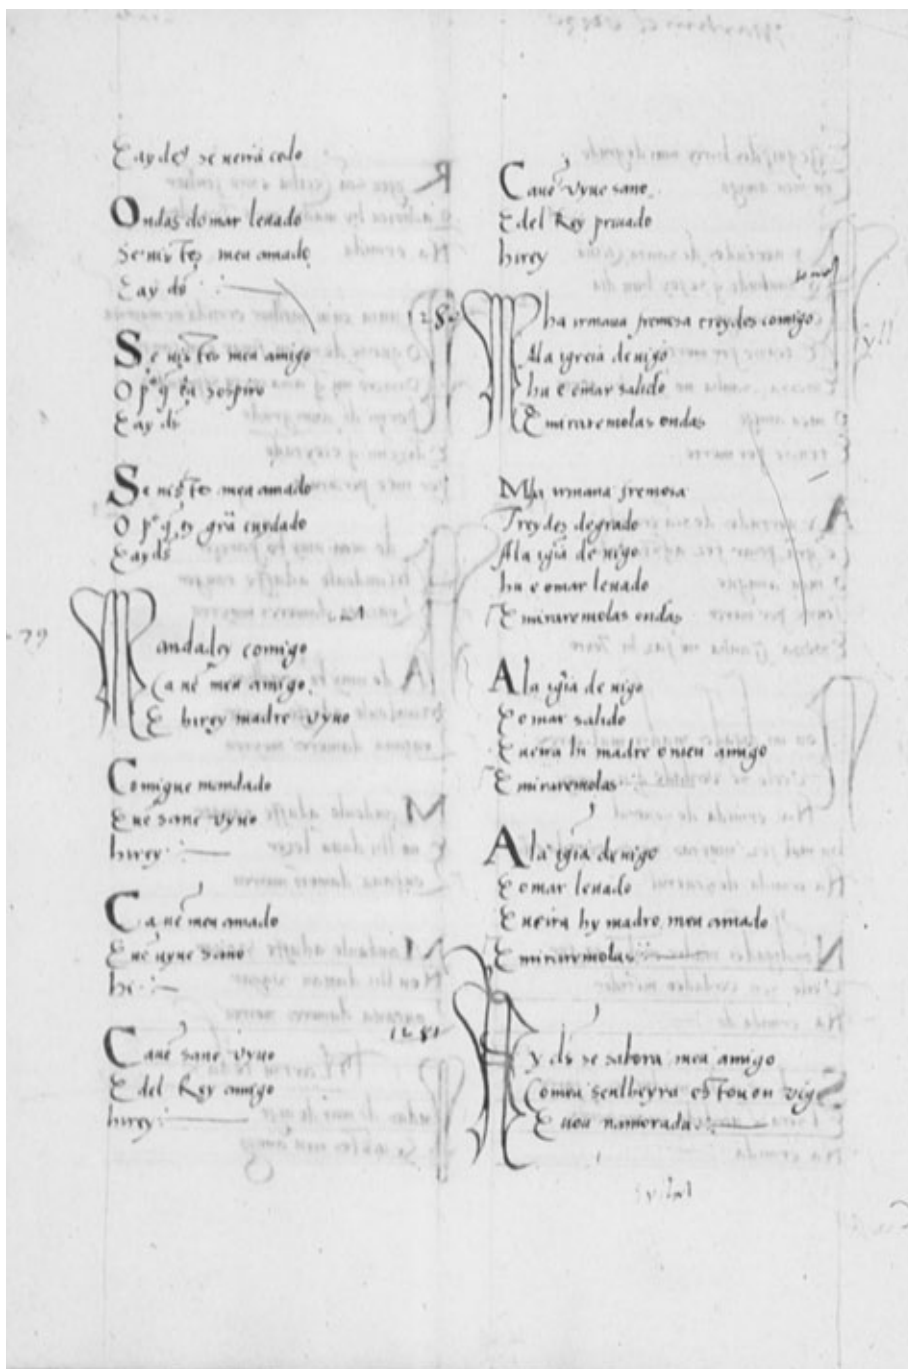 E ay ds̃ se uerrá cedo
Ondas do mar leuado
Se uistes meu amado
E ay ds̃
Se uistes meu amigo
O pº q̃ eu sospiro
E ay ds̃
Se uistes meu amado
O pº q̃ ey grã cuydado
E ay ds̃
Mandadey comigo
Ca uẽ meu amigo
E hirey madre uyuo
Comigue mandado
E uẽ sane uyuo
hirey
Ca uẽ meu amado
E uẽ uyue sano
hi
Ca uẽ sane uyuo
E del Rey amigo
hirey
Ca uẽ uyue sano
E del Rey priuado
hirey
1280
Mha irmana fremosa treydes comigo
Ala igreia deuigo
hu e omar salido
E miraremolas ondas
Mha irmana fremosa
Treydes degrado
Ala igỉa de uigo
hu e omar leuado
E miraremolas ondas
Ala igỉa de uigo
E omar salido
E ueira hi madre omeu amigo
E miraremolas
Ala igỉa deuigo
E omar leuado
E ueira hy madre meu amado
E miraremolas
1281
Ay ds̃ se sabora meu amigo
Comeu senlheyra estou en vigo
E uou namorada